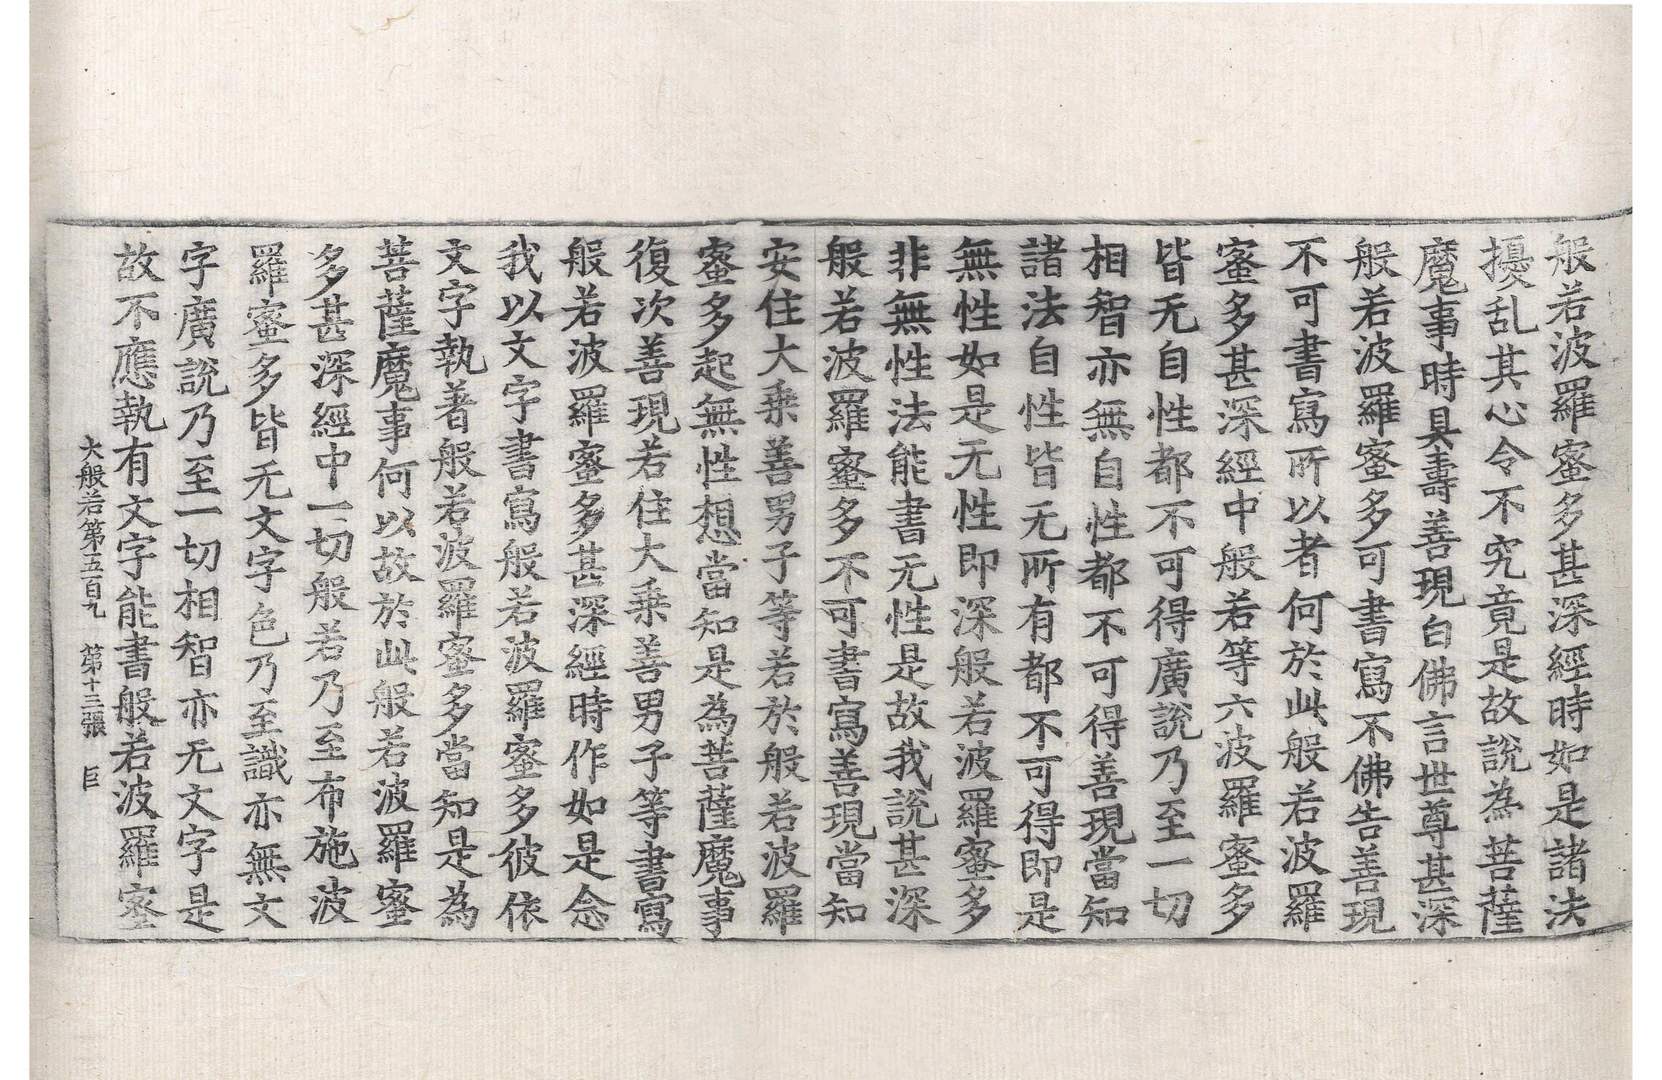 般若波羅蜜多甚深經時如是諸法
擾乱其心令不究竟是故說為菩薩
魔事時具壽善現白佛言世尊甚深
般若波羅蜜多可書寫不佛告善現
不可書寫所以者何於此般若波羅
蜜多甚深經中般若等六波羅蜜多
皆无自性都不可得廣說乃至一切
相智亦無自性都不可得善現當知
諸法自性皆无所有都不可得即是
無性如是无性即深般若波羅蜜多
非無性法能書无性是故我說甚深
般若波羅蜜多不可書寫善現當知
安住大乘善男子等若於般若波羅
蜜多起無性想當知是為菩薩魔事
復次善現若住大乘善男子等書寫
般若波羅蜜多甚深經時作如是念
我以文字書寫般若波羅蜜多彼依
文字執著般若波羅蜜多當知是為
菩薩魔事何以故於此般若波羅蜜
多甚深經中一切般若乃至布施波
羅蜜多皆无文字色乃至識亦無文
字廣說乃至一切相智亦无文字是
故不應執有文字能書般若波羅蜜
大般若第五百九 第十三張 巨